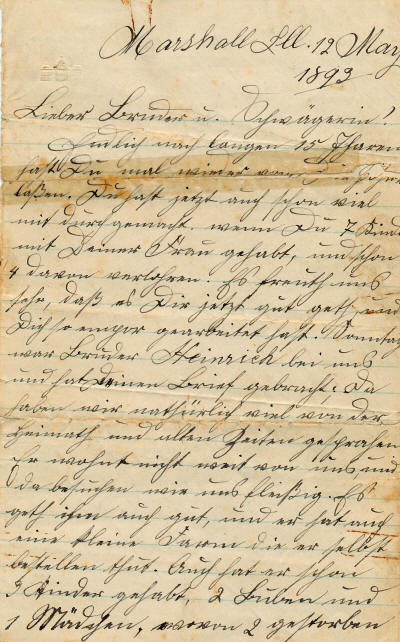 Marshall Ill. 12 May
1893
Lieber Bruder u. Schwägerin!
Endlich nach langen 15 Jharen
hast Du mal wieder von Dir hören
laßen. Du hast jetzt auch schon viel
mit durchgemacht, wenn Du 7 Kind
mit Deiner Frau gehabt, und schon
4 davon verlohren. Es freuth uns
sehr, daß es Dir jetzt gut geht, und
Dich so empor gearbeitet hast. Sonntag
war Bruder Heinrich bei uns
und hat Deinen Brief gebracht. Da
haben wir nathürlich viel von der
Heimath und alten Zeiten gesprochen
Er wohnt nicht weit von uns und
da besuchen wir uns fleißig. Es
geth ihm auch gut, und er hat auch
eine kleine Farm die er selbst
bestellen thut. Auch hat er schon
3 Kinder gehabt, 2 Buben und
1 Mädchen, wovon 2 gestorben